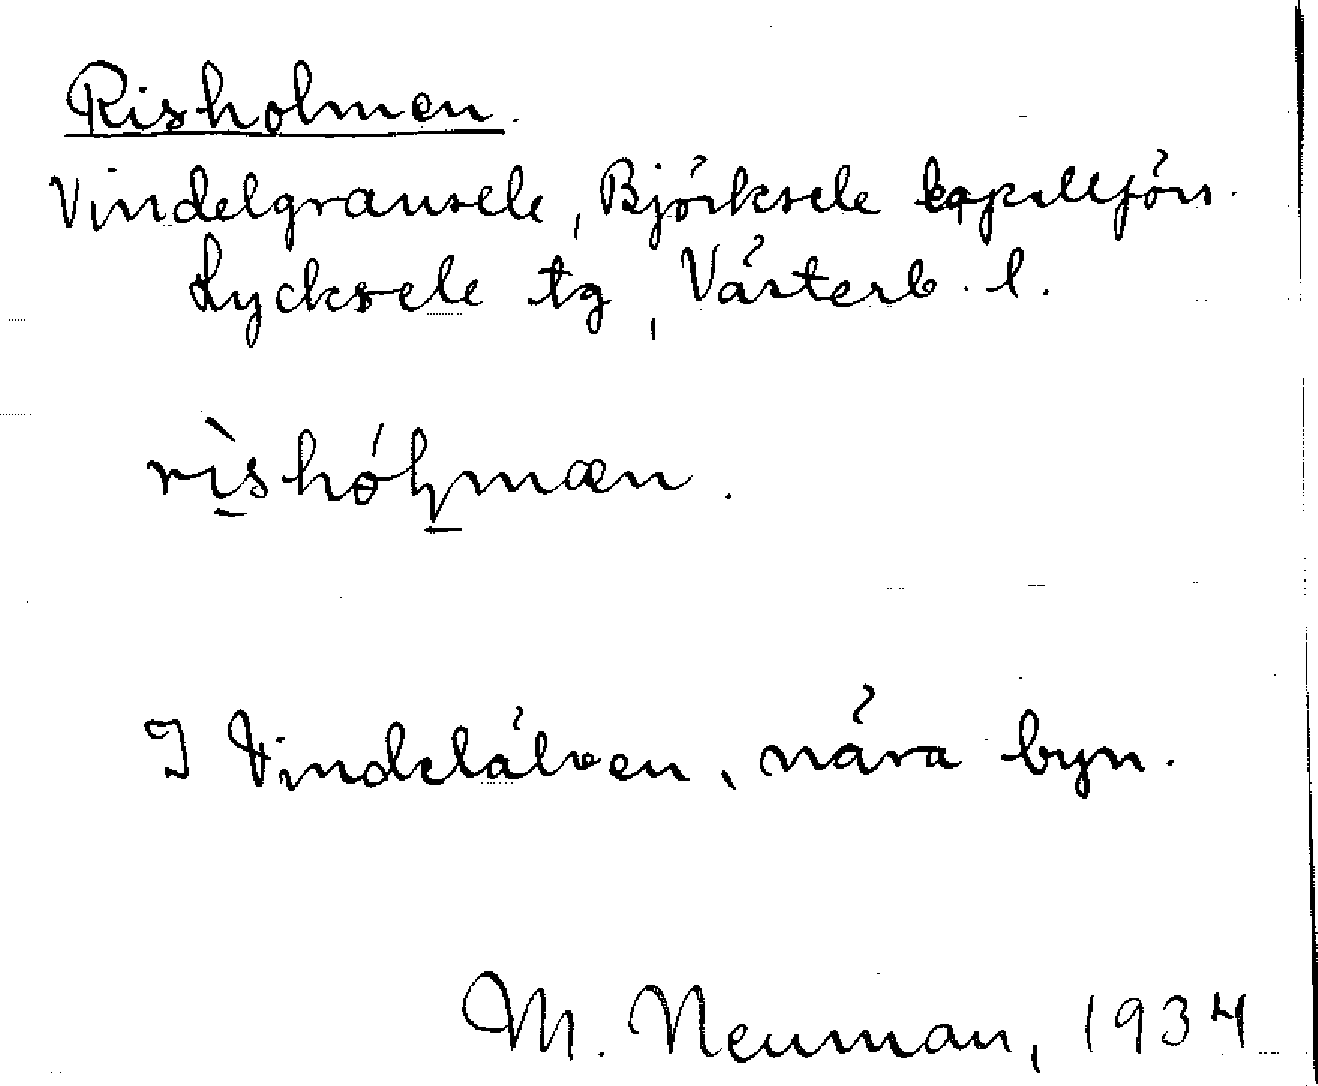 Risholmen.
Vindelgransele, Björksele kapellförs.
Lycksele tg, Västerb. l.
rìshólmæn.
I Vindelälven, nära byn.
M. Neuman, 1934